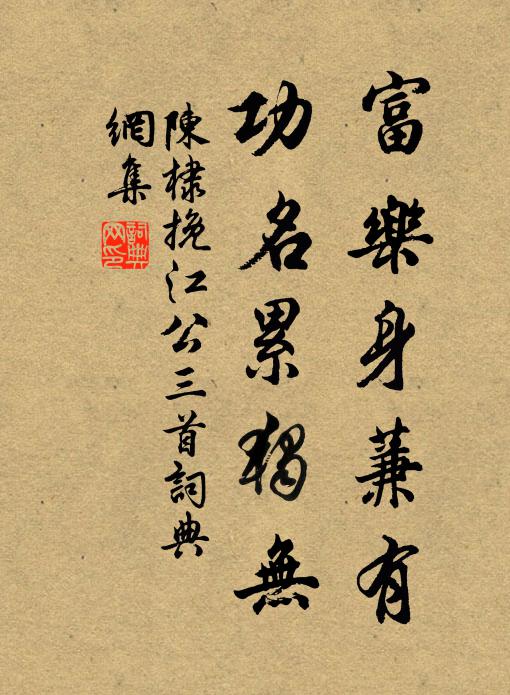 富樂身兼有
功名累獨無
陳棣挽江公三首詞典
網集
詞典
网印